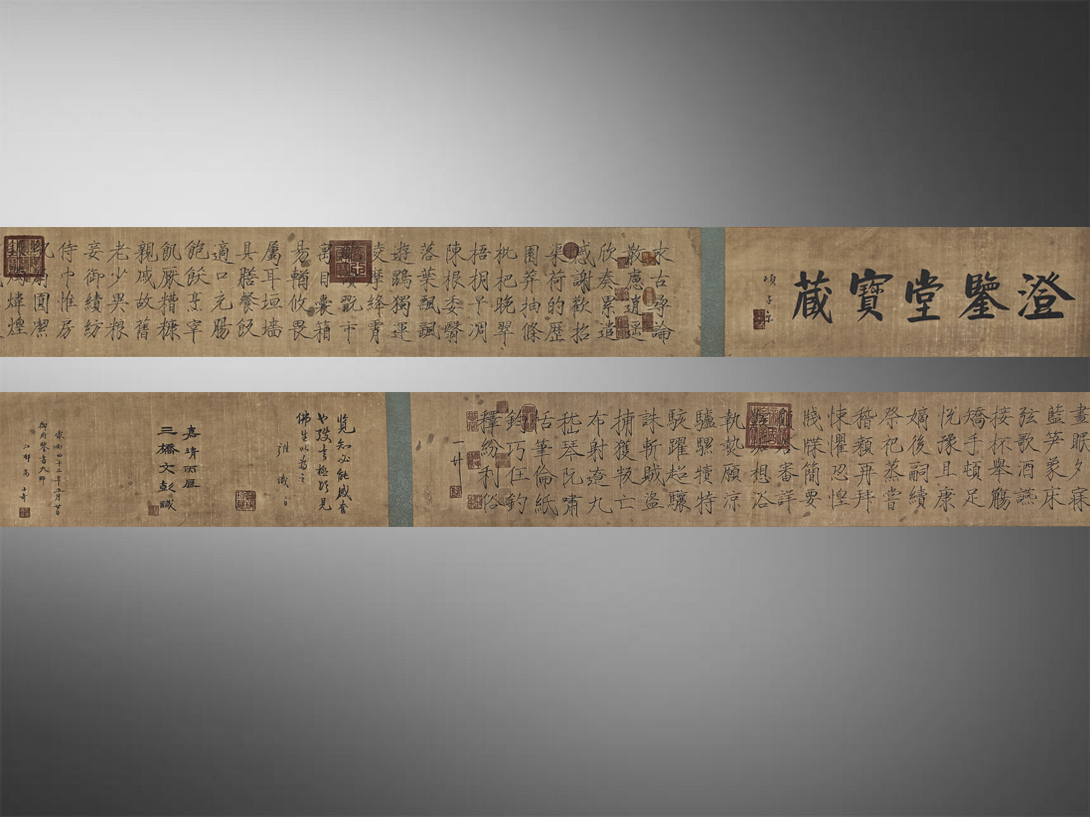 澄鑒堂寶藏
項子京
求古尋論
散慮逍遙
欣奏累遣
慼謝歡招
渠荷的歷
園莽抽條
枇杷晚翠
梧桐早凋
陳根委翳
落葉飄颻
遊鵾獨運
凌摩絳霄
翫市
寓目囊箱
易輶攸畏
屬耳垣墻
具膳餐飯
適口充腸
飽飫烹宰
飢厭糟糠
親戚故舊
老少異粮
妾御績紡
侍巾帷房
扇圓潔
煒煌
晝眠夕寐
藍笋象床
弦歌酒讌
接杯舉觴
矯手頓足
悅豫且康
嫡後嗣續
祭祀蒸嘗
稽顙再拜
悚懼恐惶
牋牒簡要
顧審詳
想浴
執熱願涼
驢騾犢特
駭躍超驤
誅斬賊盜
捕獲叛亡
布射遼丸
嵇琴阮嘯
恬筆倫紙
鈞巧任釣
釋紛利俗
覽知必能感會
嘉靖丙辰
三橋文彭識